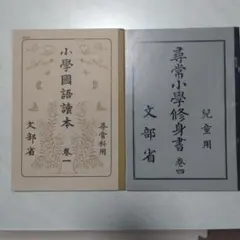 小學國語讀本 卷一
尋常科用
文部省
兒童用
尋常小學修身書 卷四
文部省